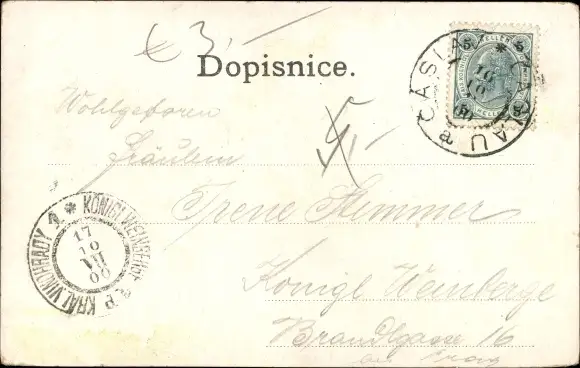 € 3,-
Dopisnice.
5 HELLER 5
ČÁSLAV * ČASLAU
10
a
Wohlgeboren
Fräulein
Irene Stemmer
Königl Weinberge
Brandlgasse 16
bei Prag
KÖNIGL. WEINBERGE * KRÁL. VINOHRADY 1
17
10
VII
00